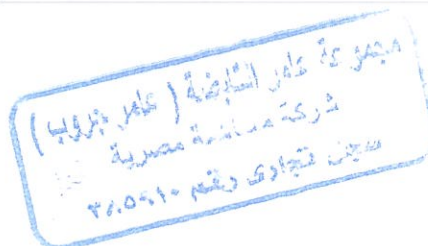 مجموعة عامر القابضة (عامر جروب)
شركة مساهمة مصرية
سجل تجارى رقم